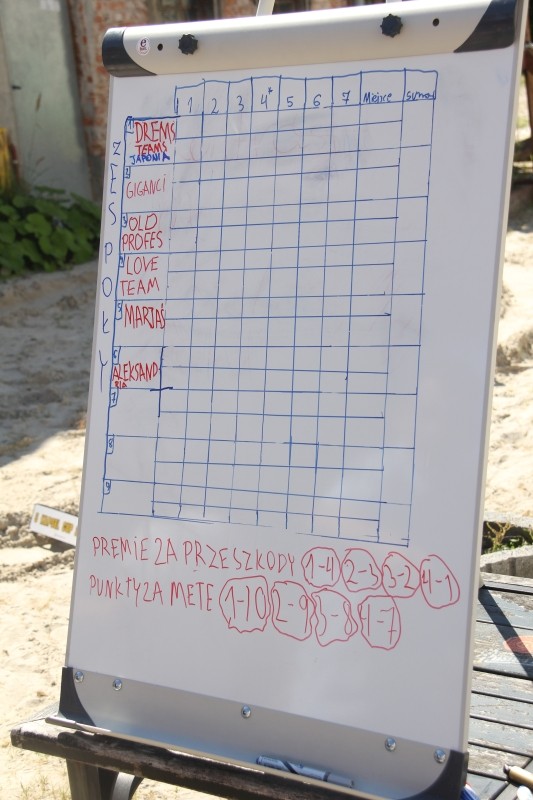 1 2 3 4* 5 6 7 Miejsce suma
ZESPOŁY
1 DREMS
TEAMS
JAPONIA
2
GIGANCI
3 OLD
PROFES
4 LOVE
TEAM
5 MARJAŚ
6
ALEKSAND-
RIA
7
8
9
PREMIE ZA PRZESZKODY 1-4 2-3 3-2 4-1
PUNKTY ZA METE 1-10 2-9 3-8 4-7